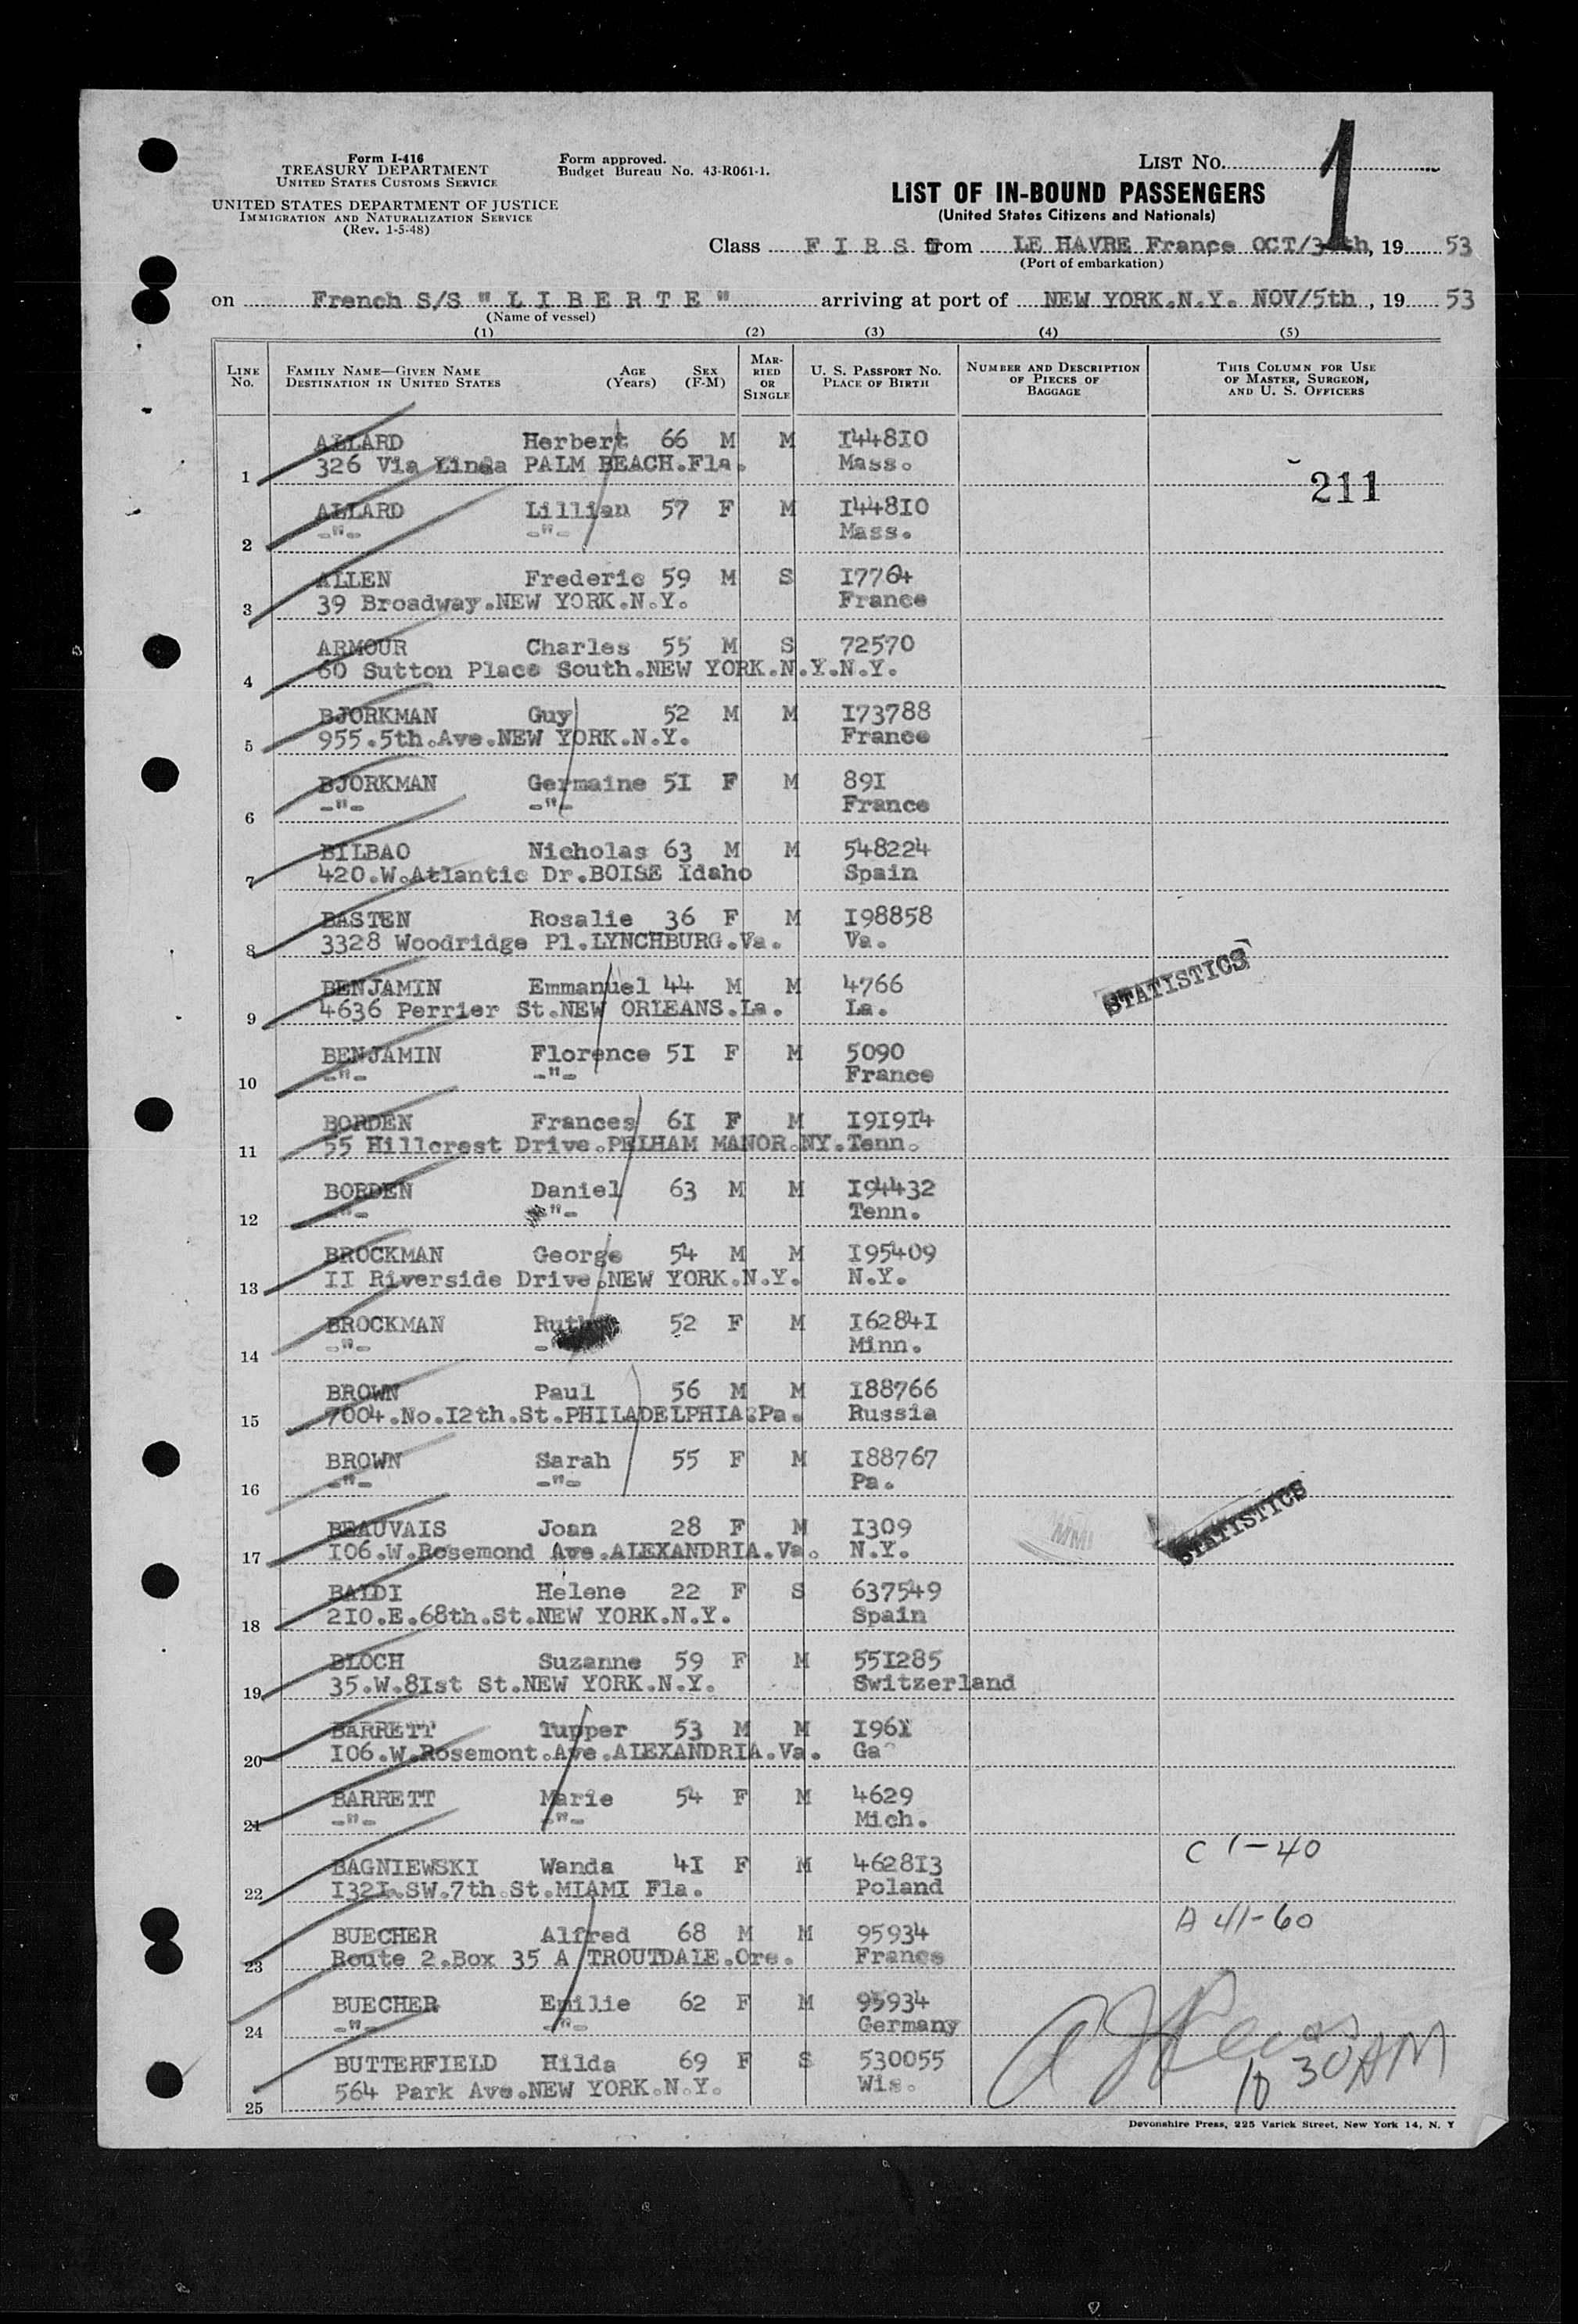 Form I-416
TREASURY DEPARTMENT
UNITED STATES CUSTOMS SERVICE
UNITED STATES DEPARTMENT OF JUSTICE
IMMIGRATION AND NATURALIZATION SERVICE
(Rev. 1-5-48)
Form approved.
Budget Bureau No. 43-R061-1.
LIST No. 1
LIST OF IN-BOUND PASSENGERS
(United States Citizens and Nationals)
Class F I R S T from LE HAVRE France OCT/ th, 19 53
(Port of embarkation)
on French S/S " L I B E R T E " arriving at port of NEW YORK.N.Y. NOV/5th, 19 53
(Name of vessel)
(1) (2) (3) (4) (5)
LINE No. FAMILY NAME—GIVEN NAME DESTINATION IN UNITED STATES AGE (Years) SEX (F-M) MARRIED OR SINGLE U. S. PASSPORT NO. PLACE OF BIRTH NUMBER AND DESCRIPTION OF PIECES OF BAGGAGE THIS COLUMN FOR USE OF MASTER, SURGEON, AND U. S. OFFICERS
ALLARD Herbert 66 M M I448I0
1 326 Via Linda PALM BEACH.Fla. Mass.
211
ALLARD Lillian 57 F M I448I0
2 -"- -"- Mass.
ALLEN Frederic 59 M S I7764
3 39 Broadway.NEW YORK.N.Y. France
ARMOUR Charles 55 M S 72570
4 60 Sutton Place South.NEW YORK.N.Y.N.Y.
BJORKMAN Guy 52 M M I73788
5 955.5th.Ave.NEW YORK.N.Y. France
BJORKMAN Germaine 5I F M 89I
6 -"- -"- France
BILBAO Nicholas 63 M M 548224
7 420.W.Atlantic Dr.BOISE Idaho Spain
BASTEN Rosalie 36 F M I98858
8 3328 Woodridge Pl.LYNCHBURG.Va. Va.
BENJAMIN Emmanuel 44 M M 4766
9 4636 Perrier St.NEW ORLEANS.La. La.
STATISTICS
BENJAMIN Florence 5I F M 5090
10 -"- -"- France
BORDEN Frances 6I F M I9I9I4
11 55 Hillcrest Drive.PELHAM MANOR.NY.Tenn.
BORDEN Daniel 63 M M I94432
12 -"- -"- Tenn.
BROCKMAN George 54 M M I95409
13 II Riverside Drive.NEW YORK.N.Y. N.Y.
BROCKMAN Ruth 52 F M I6284I
14 -"- - Minn.
BROWN Paul 56 M M I88766
15 7004.No.I2th.St.PHILADELPHIA.Pa. Russia
BROWN Sarah 55 F M I88767
16 -"- -"- Pa.
BEAUVAIS Joan 28 F M I309
17 I06.W.Rosemond Ave.ALEXANDRIA.Va. N.Y.
STATISTICS
BALDI Helene 22 F S 637549
18 2I0.E.68th.St.NEW YORK.N.Y. Spain
BLOCH Suzanne 59 F M 55I285
19 35.W.8Ist St.NEW YORK.N.Y. Switzerland
BARRETT Tupper 53 M M I96I
20 I06.W.Rosemont.Ave.ALEXANDRIA.Va. Ga
BARRETT Marie 54 F M 4629
21 -"- -"- Mich.
C 1-40
BAGNIEWSKI Wanda 4I F M 4628I3
22 I32I.SW.7th.St.MIAMI Fla. Poland
A 41-60
BUECHER Alfred 68 M M 95934
23 Route 2.Box 35 A TROUTDALE.Ore. France
BUECHER Emilie 62 F M 95934
24 -"- -"- Germany
BUTTERFIELD Hilda 69 F S 530055
25 564 Park Ave.NEW YORK.N.Y. Wis.
10 30AM
Devonshire Press, 225 Varick Street, New York 14, N. Y